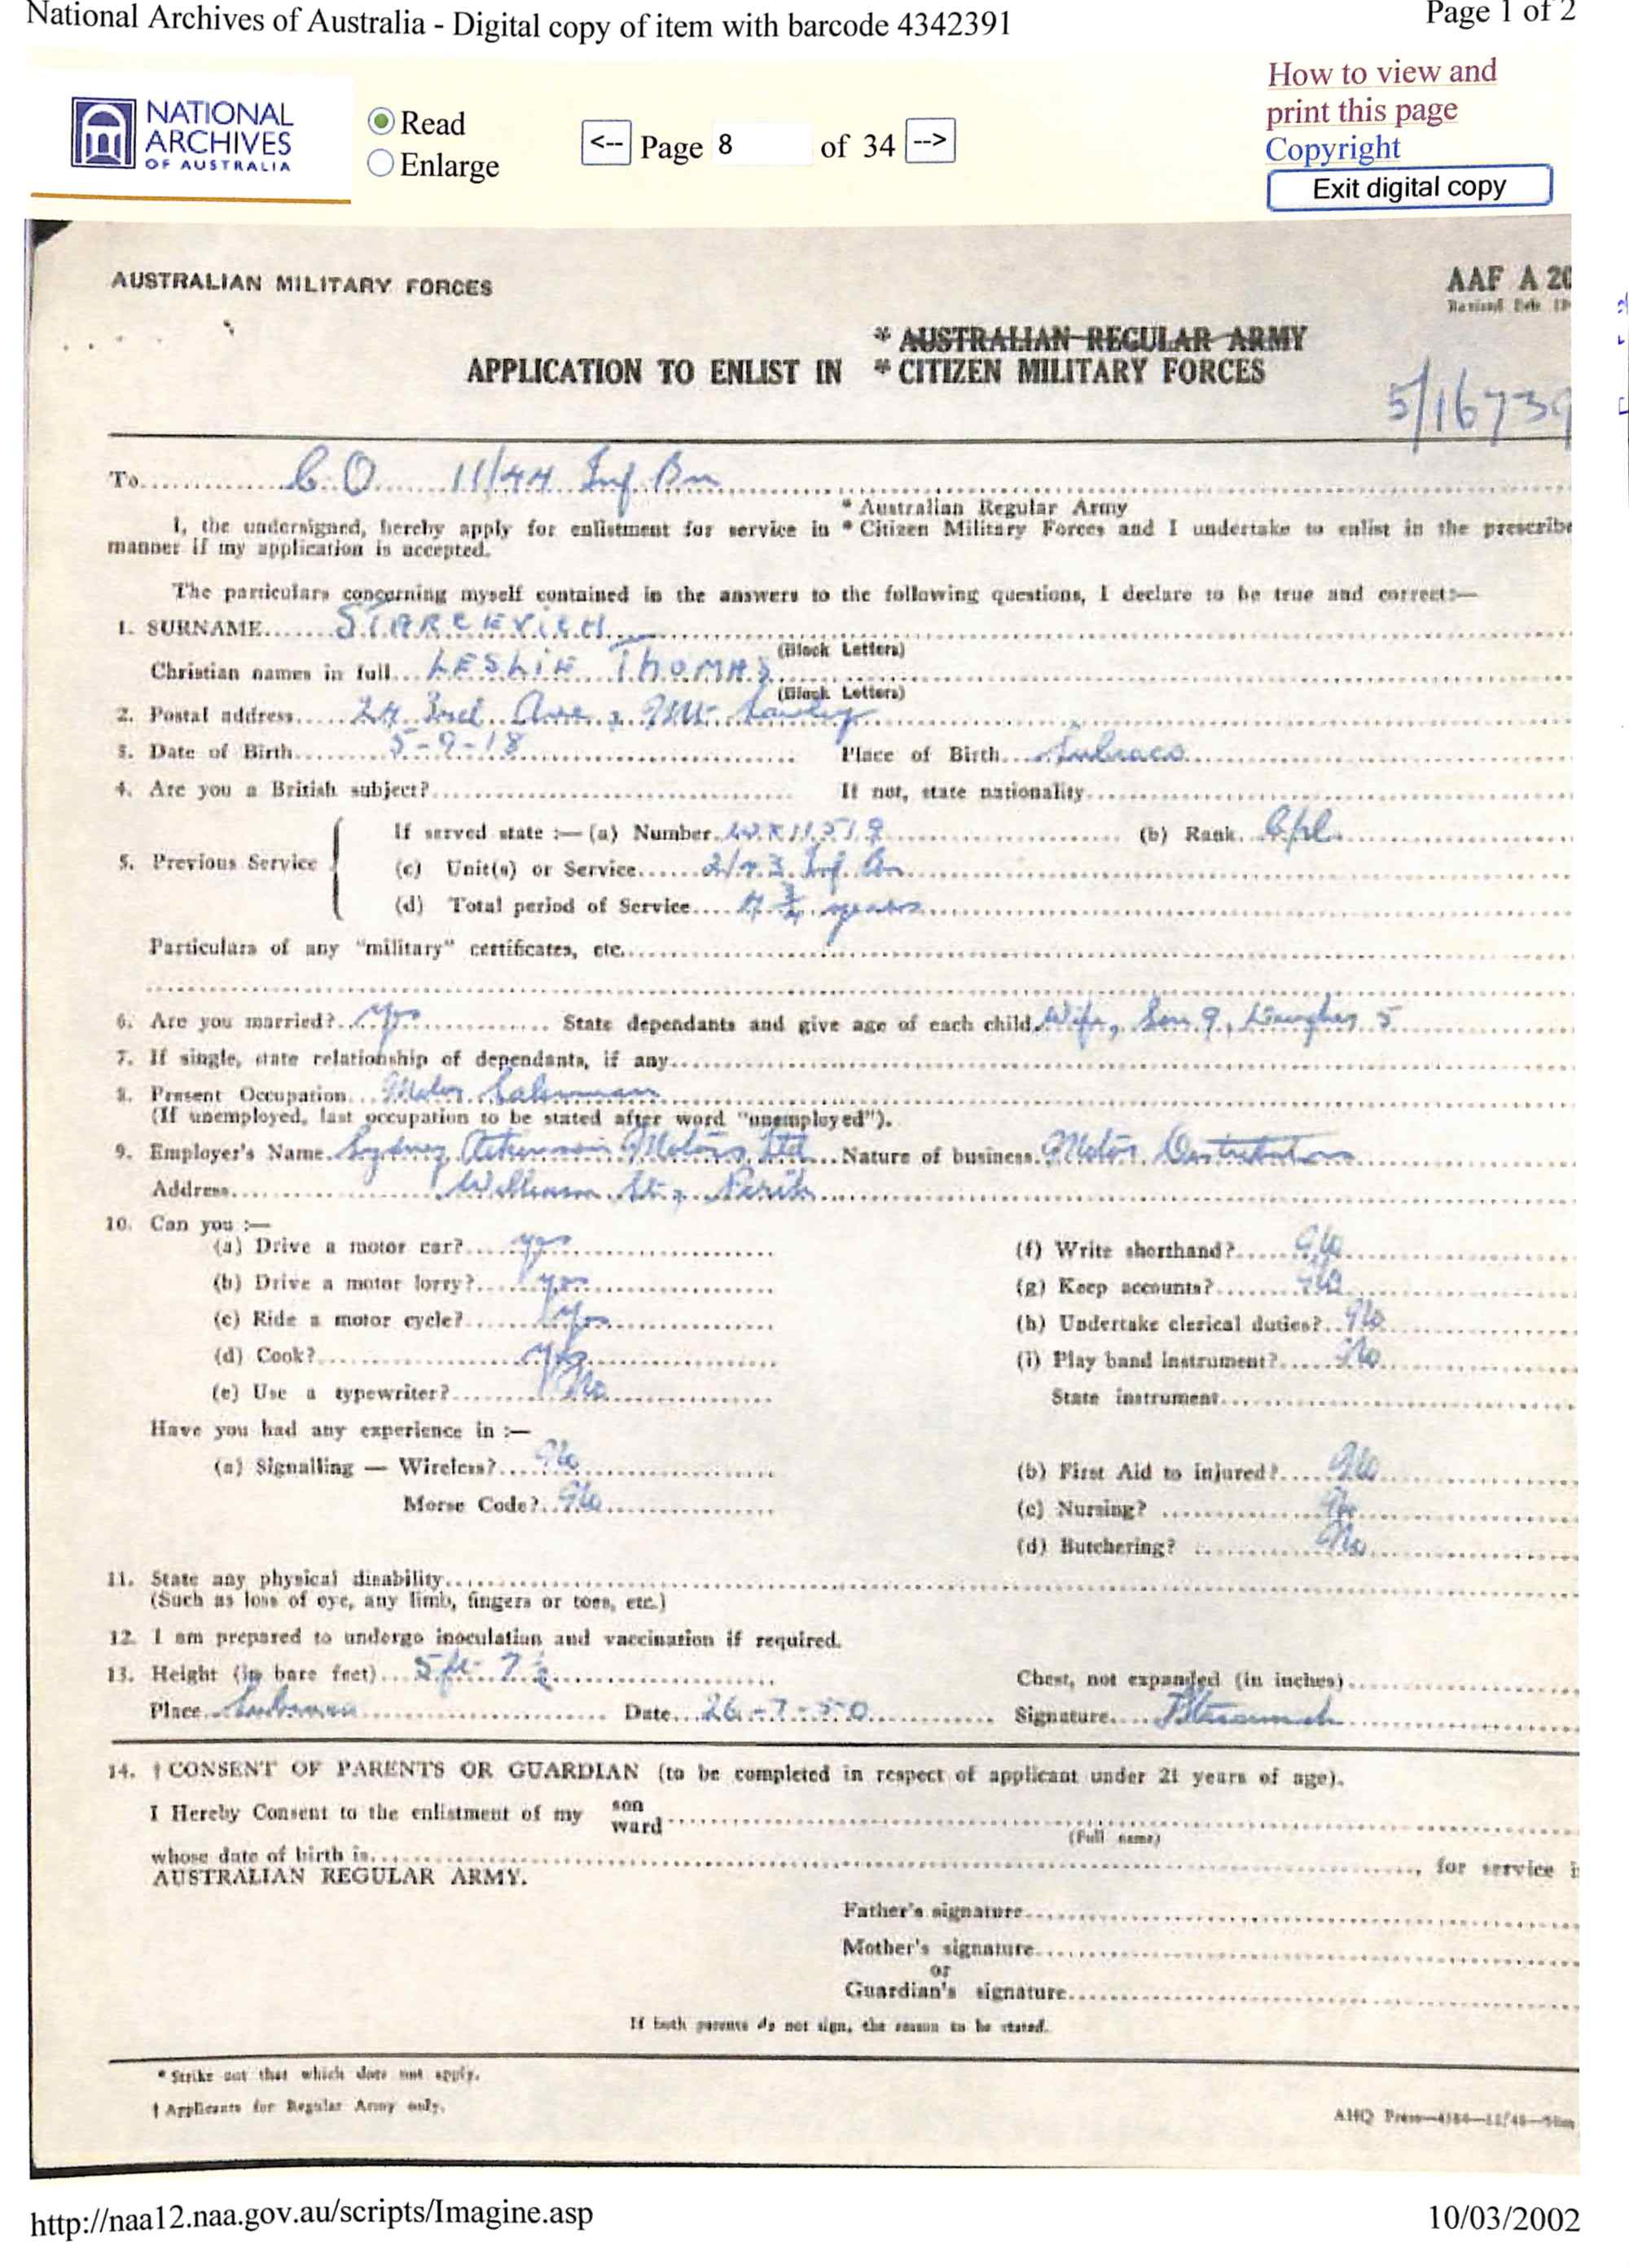 National Archives of Australia - Digital copy of item with barcode 4342391 Page 1 of 2
NATIONAL ARCHIVES OF AUSTRALIA
Read
Enlarge
<-- Page 8 of 34 -->
How to view and print this page
Copyright
Exit digital copy
AUSTRALIAN MILITARY FORCES
AAF A 20
* AUSTRALIAN REGULAR ARMY
APPLICATION TO ENLIST IN * CITIZEN MILITARY FORCES
5/16739
To C.O 11/44 Inf Bn
* Australian Regular Army
I, the undersigned, hereby apply for enlistment for service in * Citizen Military Forces and I undertake to enlist in the prescribe
manner if my application is accepted.
The particulars concerning myself contained in the answers to the following questions, I declare to be true and correct:—
1. SURNAME STARCEVICH
(Block Letters)
Christian names in full LESLIE THOMAS
(Block Letters)
2. Postal address 24 Ave, Mt Lawley
3. Date of Birth 5-9-18 Place of Birth Subiaco
4. Are you a British subject? If not, state nationality
5. Previous Service
If served state :— (a) Number WX11519 (b) Rank Cpl
(c) Unit(s) or Service 2/43 Inf Bn
(d) Total period of Service 4 3/4 years
Particulars of any "military" certificates, etc.
6. Are you married? Yes State dependants and give age of each child Wife, Son 9, Daughter 5
7. If single, state relationship of dependants, if any
8. Present Occupation Motor Salesman
(If unemployed, last occupation to be stated after word "unemployed").
9. Employer's Name Sydney Atkinson Motors Ltd Nature of business Motor Distributors
Address William St, Perth
10. Can you :—
(a) Drive a motor car? yes (f) Write shorthand? No
(b) Drive a motor lorry? yes (g) Keep accounts? No
(c) Ride a motor cycle? Yes (h) Undertake clerical duties? No
(d) Cook? yes (i) Play band instrument? No
(e) Use a typewriter? No State instrument
Have you had any experience in :—
(a) Signalling — Wireless? No (b) First Aid to injured? No
Morse Code? No (c) Nursing? No
(d) Butchering? No
11. State any physical disability
(Such as loss of eye, any limb, fingers or toes, etc.)
12. I am prepared to undergo inoculation and vaccination if required.
13. Height (in bare feet) 5 ft 7 1/2 Chest, not expanded (in inches)
Place Subiaco Date 26-7-50 Signature
14. † CONSENT OF PARENTS OR GUARDIAN (to be completed in respect of applicant under 21 years of age).
I Hereby Consent to the enlistment of my son ward
(Full name)
whose date of birth is , for service i
AUSTRALIAN REGULAR ARMY.
Father's signature
Mother's signature
or
Guardian's signature
If both parents do not sign, the reason to be stated.
* Strike out that which does not apply.
† Applicants for Regular Army only.
AHQ Press
http://naa12.naa.gov.au/scripts/Imagine.asp 10/03/2002